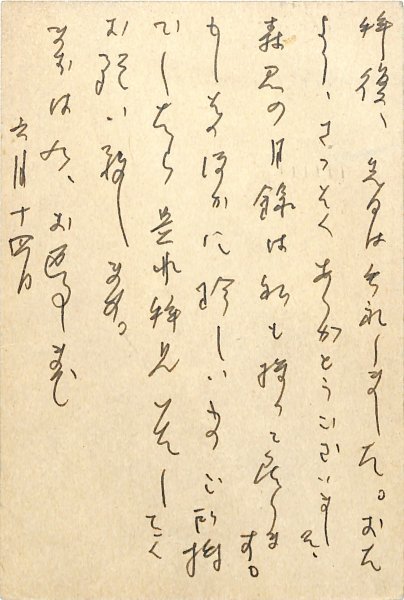 拝復、先日は失礼しました。おた
より、さつそくありがとうございました、
森君の目録は私も持つて居りま
す。
もしそのほかに珍しいものご所持
でしたら是非拝見いたしたく
お願い致します。
まずは右、お返事まで
六月十四日